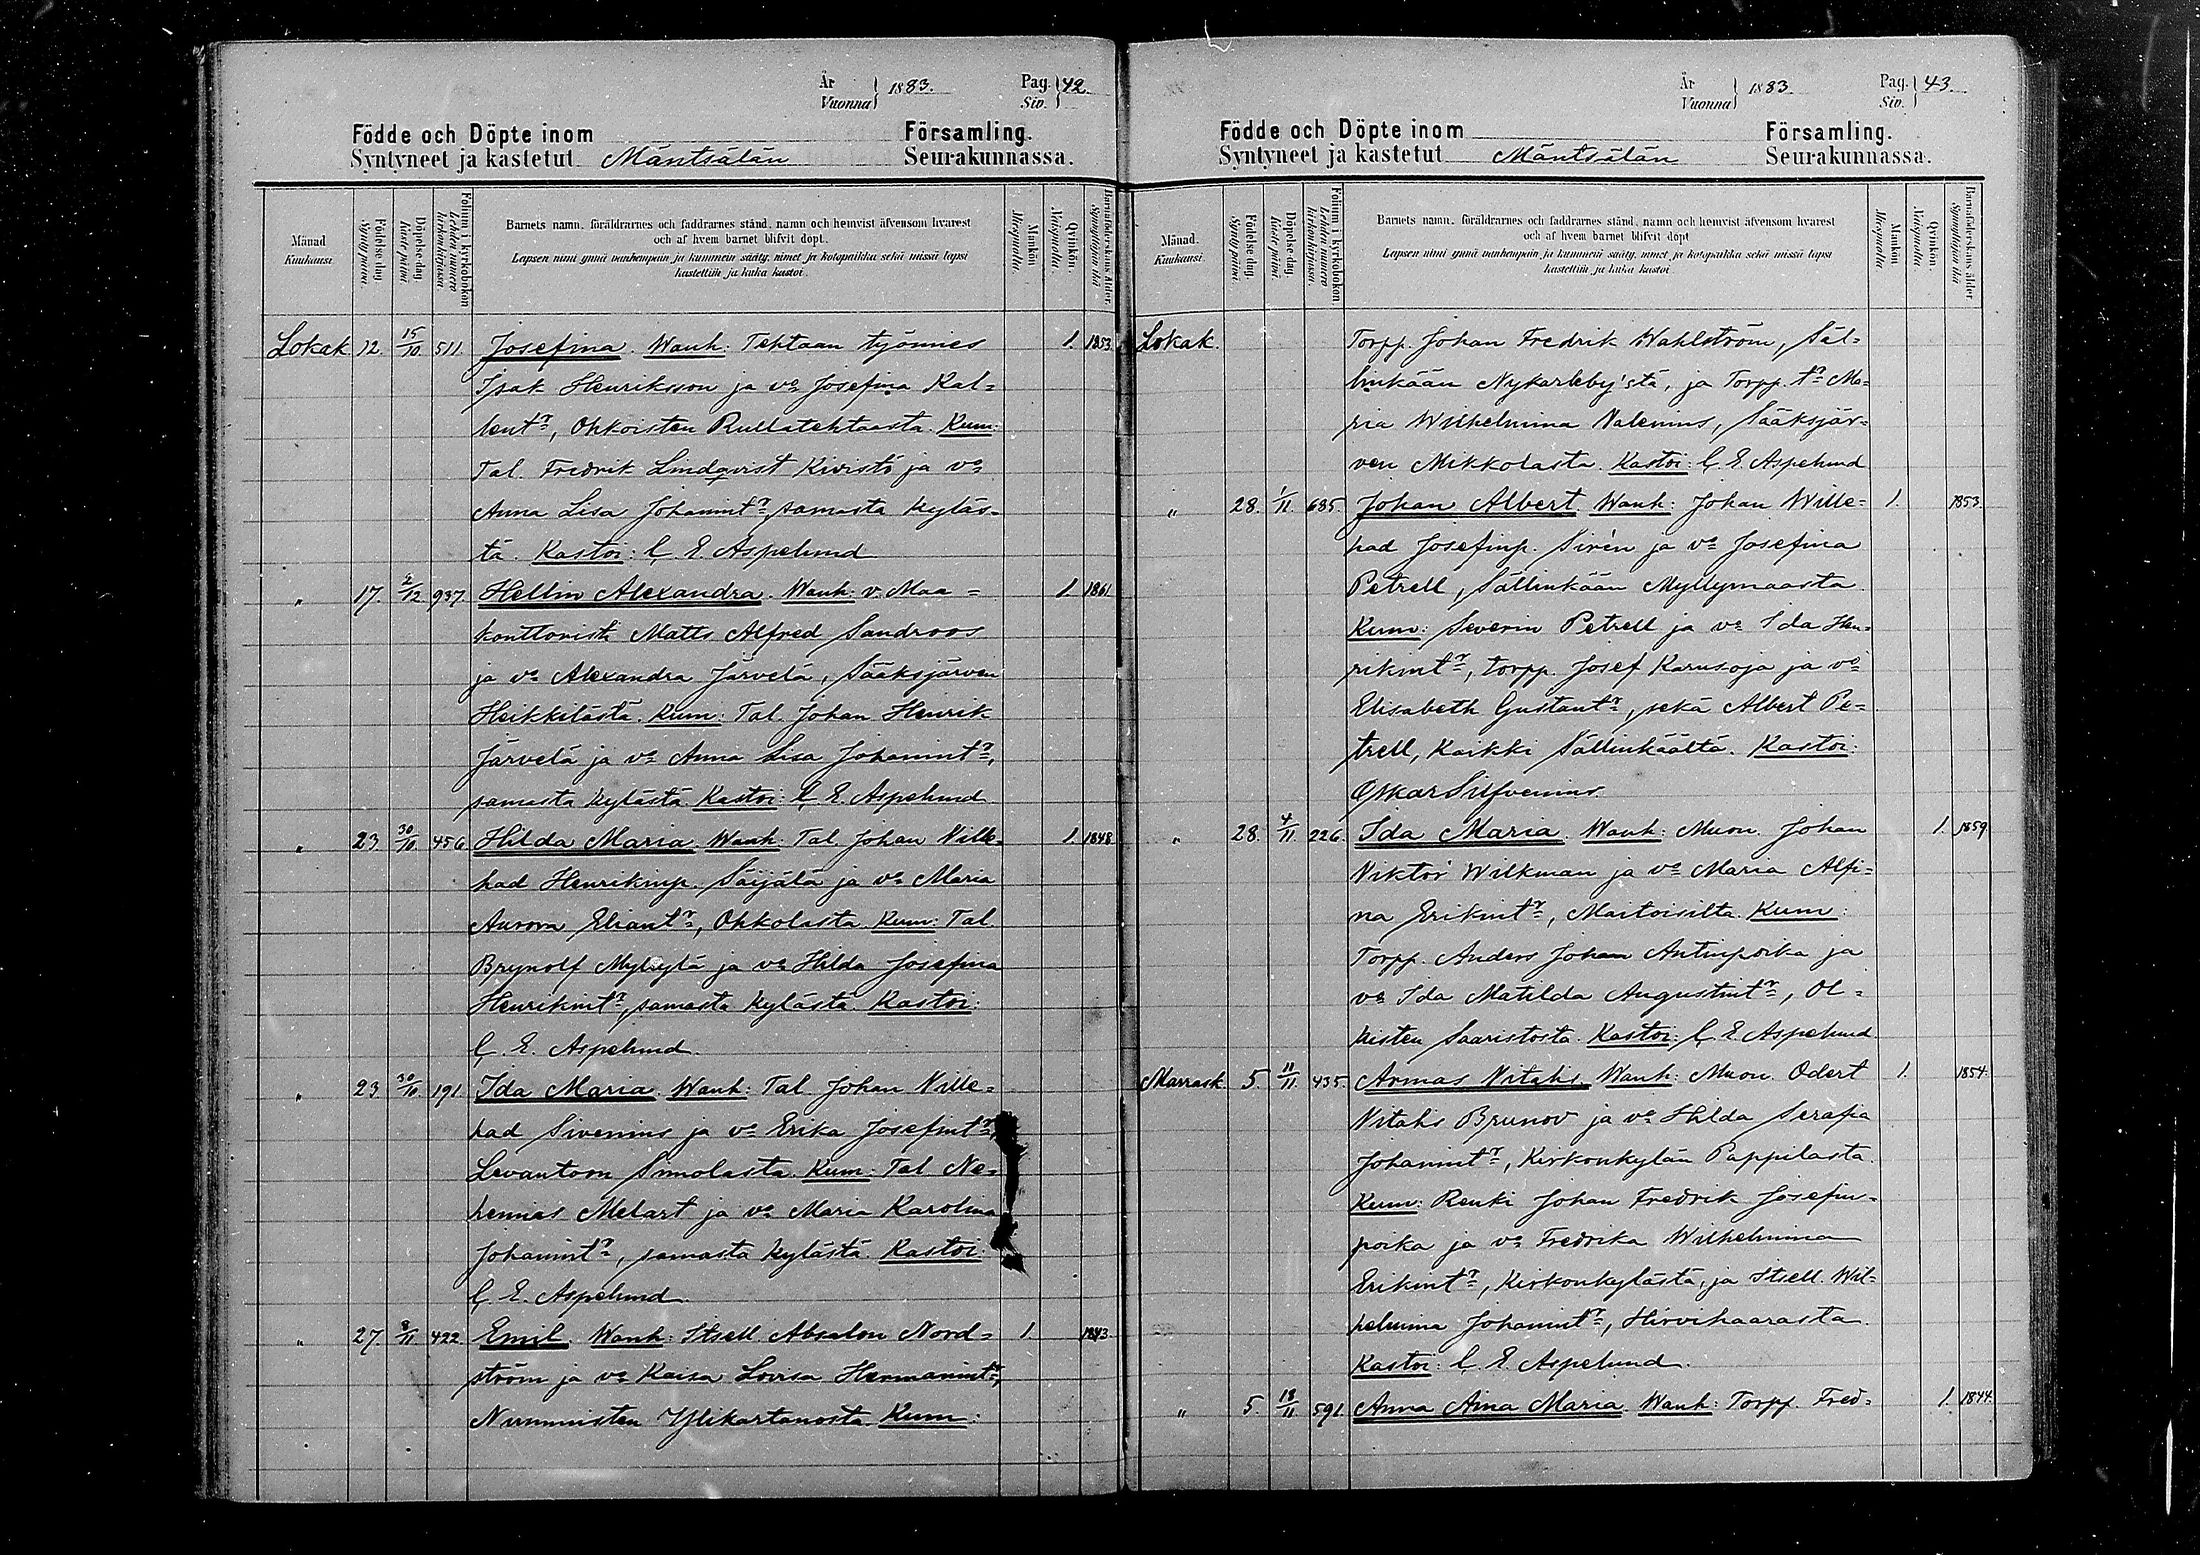 År
Vuonna } 1883.
Pag.
Siv. } 42.
Födde och Döpte inom Församling.
Syntyneet ja kastetut Mäntsälän Seurakunnassa.
Månad
Kuukausi.
Födelse-dag.
Syntypäivä.
Döpelse-dag.
Kastepäivä.
Folium i kyrkoboken.
Lehden numero kirkonkirjassa.
Barnets namn, föräldrarnes och faddrarnes stånd, namn och hemvist äfvensom hvarest
och af hvem barnet blifvit döpt.
Lapsen nimi ynnä vanhempain ja kummein sääty, nimet ja kotopaikka sekä missä lapsi
kastettiin ja kuka kastoi.
Mankön.
Miespuolia.
Qvinkön.
Vaspuolia.
Barnaföderskans ålder.
Synnyttäjän ikä
Lokak. 12. 15/10 511 Josefina. Wanh: Tehtaan työmies 1. 1853.
Isak Henriksson ja vo Josefina Kal=
lentr, Ohkoisten Rullatehtaasta. Kum:
Tal. Fredrik Lindqvist Kivistö ja vo
Anna Lisa Johanintr, samasta kyläs=
tä. Kastoi: C. E. Aspelund
„ 17. 2/12 937. Hellin Alexandra. Wanh: v. Maa= 1. 1861
konttoristi Matts Alfred Sandroos
ja vo Alexandra Järvelä, Sääksjärven
Heikkilästä. Kum: Tal. Johan Henrik
Järvelä ja vo Anna Lisa Johanintr,
samasta kylästä. Kastoi: C. E. Aspelund
„ 23. 30/10 456 Hilda Maria. Wanh: Tal. Johan Wille= 1. 1848
had Henrikinp. Säijälä ja vo Maria
Aurora Eliantr, Ohkolasta. Kum: Tal.
Brynolf Myllylä ja vo Hilda Josefina
Henrikintr, samasta kylästä. Kastoi:
C. E. Aspelund.
„ 23. 30/10 191. Ida Maria. Wanh: Tal. Johan Wille=
had Sivenius ja vo Erika Josefintr,
Levantoon Kum: Tal. Ne=
hemias Melart ja vo Maria Karolina
Johanintr, samasta kylästä. Kastoi:
C. E. Aspelund.
„ 27. 8/11 422. Emil. Wanh: Itsell. Absalon Nord= 1. 1843.
ström ja vo Kaisa Lovisa Hermanintr,
Nummisten Ylikartanosta. Kum:
År
Vuonna } 1883.
Pag.
Siv. } 43.
Födde och Döpte inom Församling.
Syntyneet ja kastetut Mäntsälän Seurakunnassa.
Månad.
Kuukausi.
Födelse-dag.
Syntypäivä.
Döpelse-dag.
Kastepäivä.
Folium i kyrkoboken.
Lehden numero kirkonkirjassa.
Barnets namn, föräldrarnes och faddrarnes stånd, namn och hemvist äfvensom hvarest
och af hvem barnet blifvit döpt
Lapsen nimi ynnä vanhempain ja kummein sääty, nimet ja kotopaikka sekä missä lapsi
kastettiin ja kuka kastoi
Mankön.
Miespuolia
Qvinkön.
Vaspuolia.
Barnaföderskans ålder
Synnyttäjän ikä
Lokak. Torpp. Johan Fredrik Wahlström, Säl=
linkään Nykarleby'stä, ja Torpp. tr Ma=
ria Wilhelmina Valenius, Sääksjär=
ven Mikkolasta. Kastoi: C. E. Aspelund
„ 28. 1/11 685. Johan Albert Wanh: Johan Wille= 1. 1853.
had Josefinp. Sirén ja vo Josefina
Petrell, Sällinkään Myllymaasta.
Kum: Severin Petrell ja vo Ida Hen=
rikintr, torpp. Josef Karusoja ja vo
Elisabeth Gustavtr, sekä Albert Pe=
trell, Kaikki Sällinkäältä. Kastoi:
Oskar Silfvenius.
„ 28. 4/11 226. Ida Maria. Wanh: Muon. Johan 1. 1859
Viktor Wilkman ja vo Maria Alfi=
na Erikintr, Maitoisilta. Kum:
Torpp. Anders Johan Antinpoika ja
vo Ida Matilda Augustintr, Ol=
kisten Saaristosta. Kastoi: C. E. Aspelund
Marrask. 5. 11/11 435. Armas Vitalis. Wanh: Muon. Odert 1. 1854.
Vitalis Brunov ja vo Hilda Serafia
Johanintr, Kirkonkylän Pappilasta.
Kum: Renki Johan Fredrik Josefin=
poika ja vo Fredrika Wilhelmina
Erikintr, Kirkonkylästä, ja Itsell. Wil=
helmina Johanintr, Hirvihaarasta.
Kastoi: C. E. Aspelund.
„ 5. 18/11 591. Anna Aina Maria. Wanh: Torpp. Fred= 1. 1844.